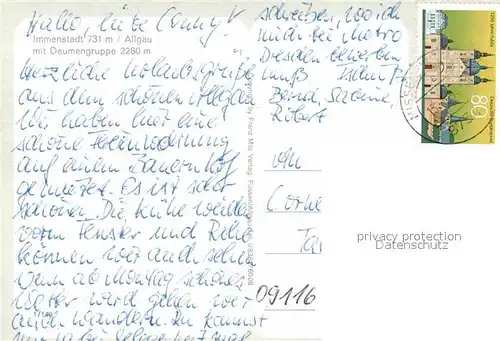 Hallo, liebe Conny!
Immenstadt 731 m / Allgäu
mit Daumengruppe 2280 m
Herzliche Urlaubsgrüße
aus dem schönen Allgäu
Wir haben hier eine
schöne Ferienwohnung
auf einem Bauernhof
gemietet. Es ist sehr
schön. Die Kühe weiden
vorm Fenster und Rehe
können wir auch sehen
Wenn ab Montag schönes
Wetter wird gehen wir
auch wandern. Du kannst
mir ja bei Gelegenheit mal
schreiben, wo ich
mich bei Metro
Dresden bewerben
muß. Tschüß
Bernd, Sabine,
Robert
An
Corne
Ta
09116
Franz Milz Verlag
80
privacy protection
Datenschutz